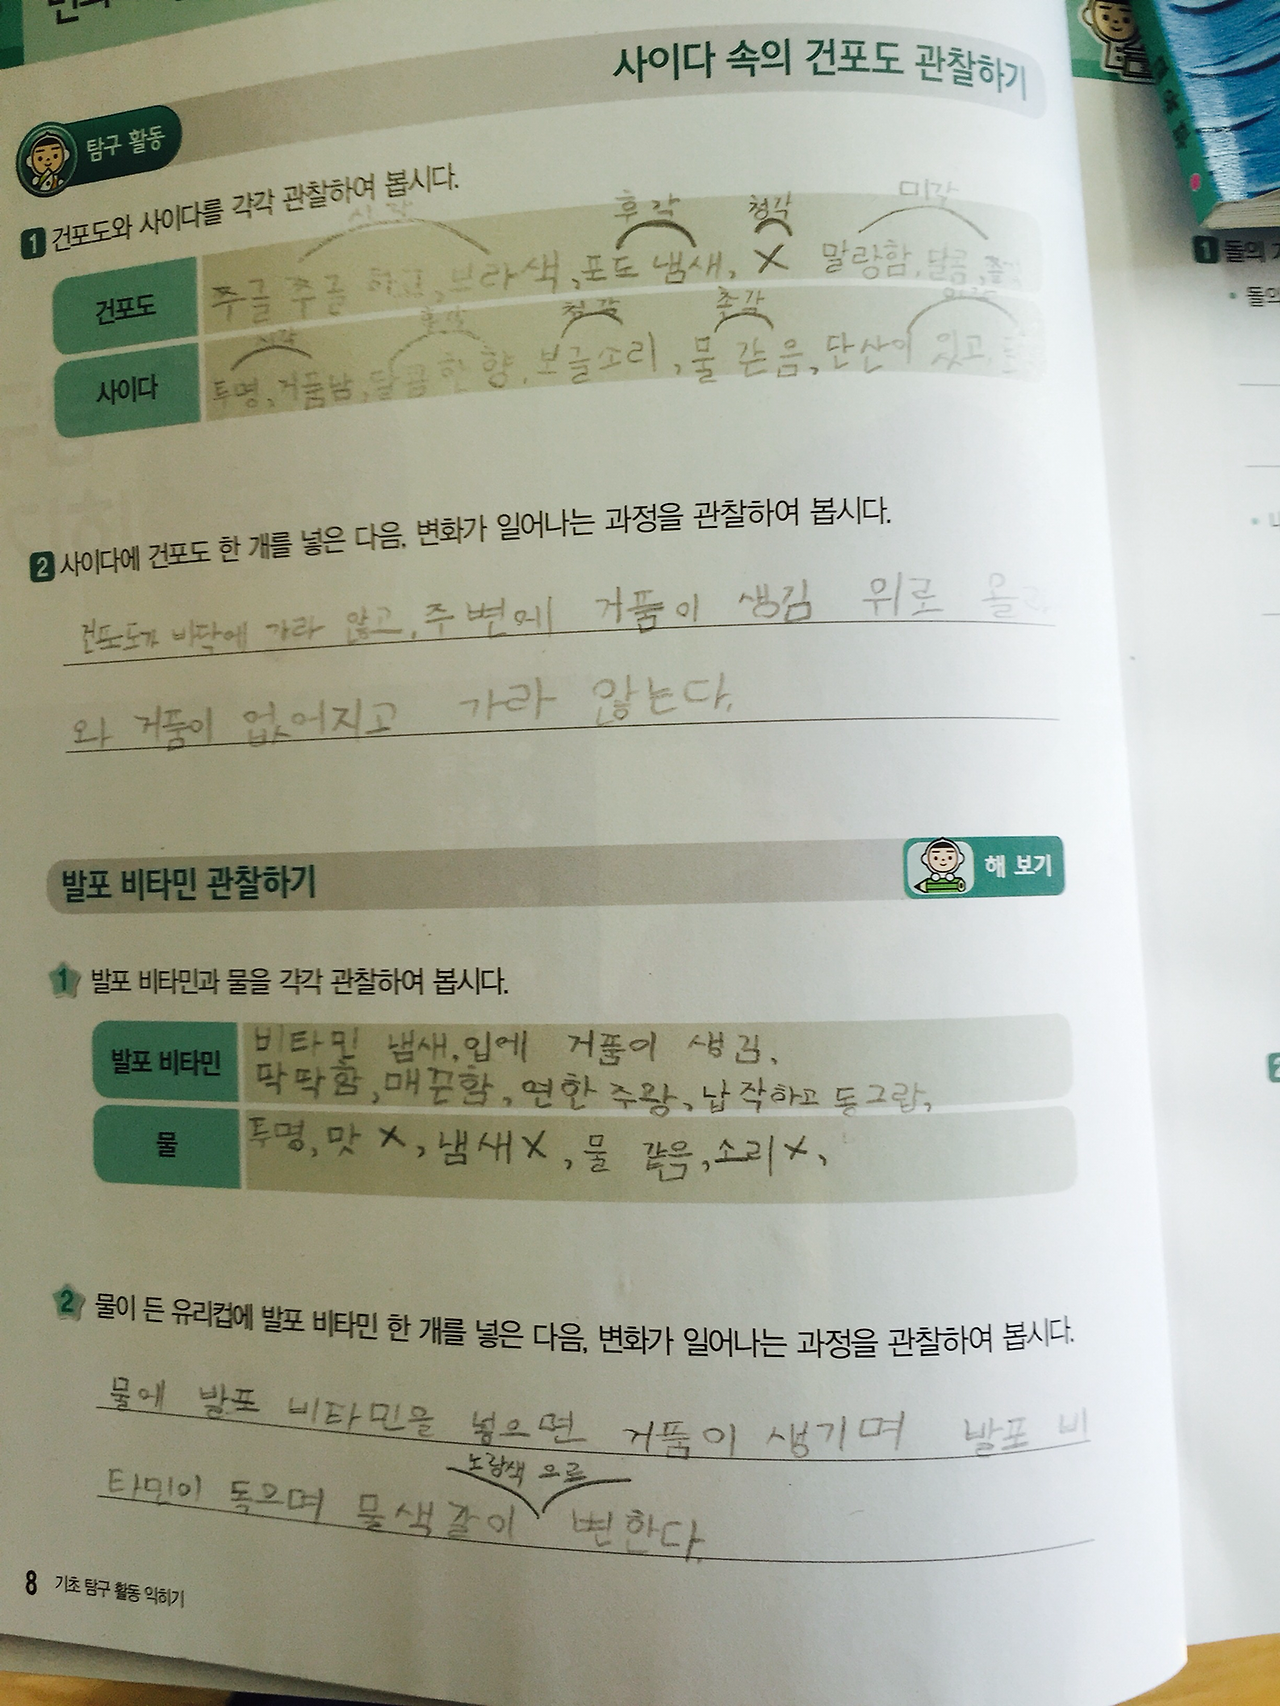 사이다 속의 건포도 관찰하기
탐구 활동
1 건포도와 사이다를 각각 관찰하여 봅시다.
시각 후각 청각 미각
건포도 쭈글 쭈글 하고, 보라색, 포도 냄새, X 말랑함, 달콤,
시각 후각 청각 촉각
사이다 투명, 거품남, 달콤한 향, 보글소리, 물 같음, 탄산이 있고,
2 사이다에 건포도 한 개를 넣은 다음, 변화가 일어나는 과정을 관찰하여 봅시다.
건포도가 바닥에 가라 않고, 주변에 거품이 생김 위로 올라
와 거품이 없어지고 가라 않는다.
발포 비타민 관찰하기
해 보기
1 발포 비타민과 물을 각각 관찰하여 봅시다.
발포 비타민 비타민 냄새, 입에 거품이 생김,
딱딱함, 매끈함, 연한 주황, 납작하고 동그람,
물 투명, 맛 X, 냄새X, 물 같음, 소리X,
2 물이 든 유리컵에 발포 비타민 한 개를 넣은 다음, 변화가 일어나는 과정을 관찰하여 봅시다.
물에 발포 비타민을 넣으면 거품이 생기며 발포 비
노랑색 으로
타민이 녹으며 물색깔이 변한다.
8 기초 탐구 활동 익히기
1 돌의
• 돌의